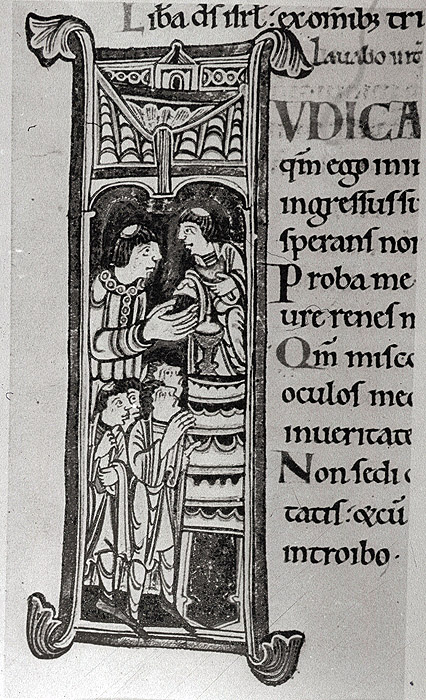 Liba ds isrl: ex omibs tri
Lauabo int
VDICA
qm ego inn
ingressus su
sperans non
Proba me
ure renes m
Qm misce
oculos meo
inueritate
Non sedi c
tatis: & cu
introibo.